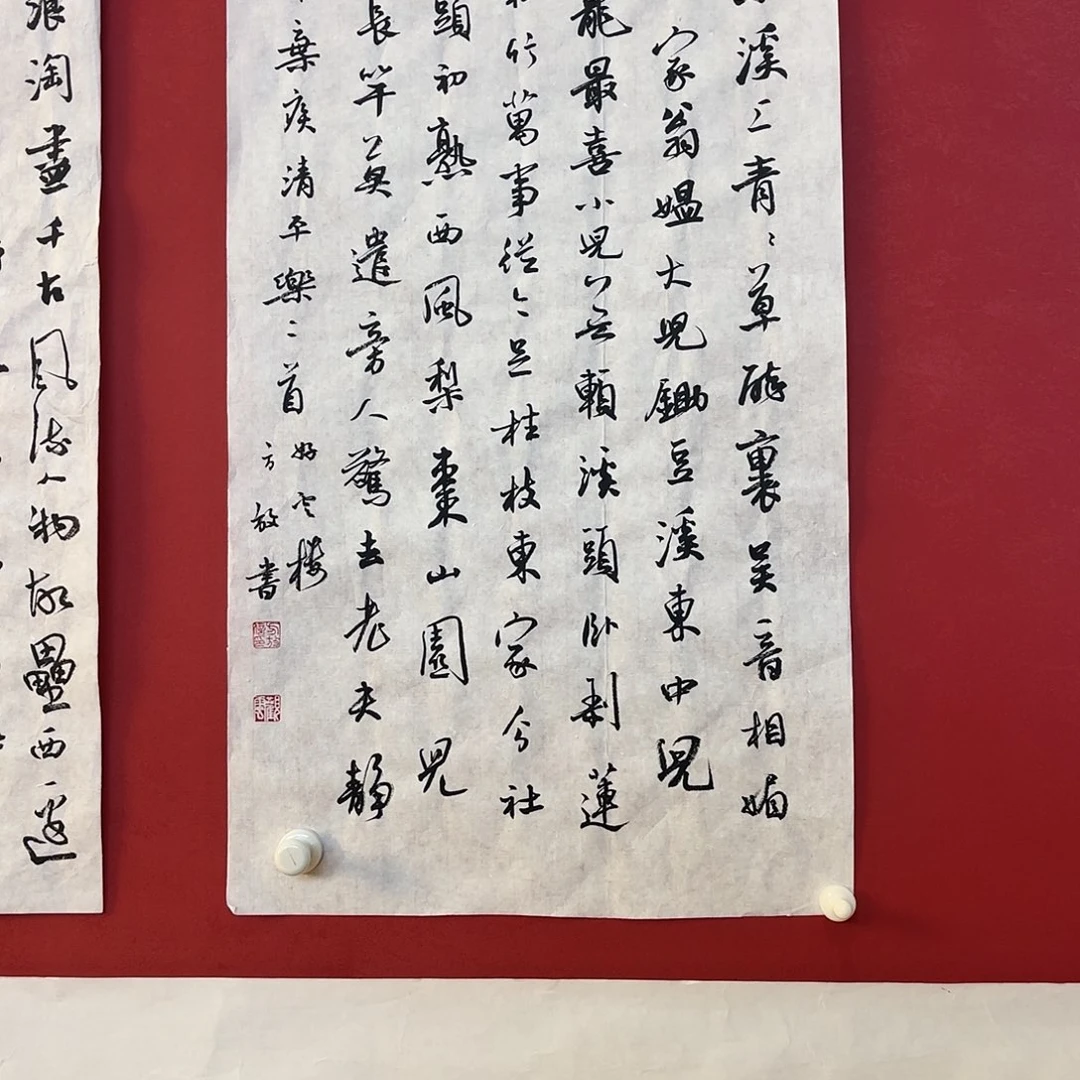 溪上青々草醉裏吴音相媚
家翁媼大兒鋤豆溪東中兒
龍最喜小兒无賴溪頭卧剥蓮
竹萬事從今足拄杖東家分社
頭初熟西風梨棗山園兒
長竿莫遣旁人驚去老夫静
棄疾清平樂二首 好雲樓
方放書
浪淘盡千古風流人物故壘西邊